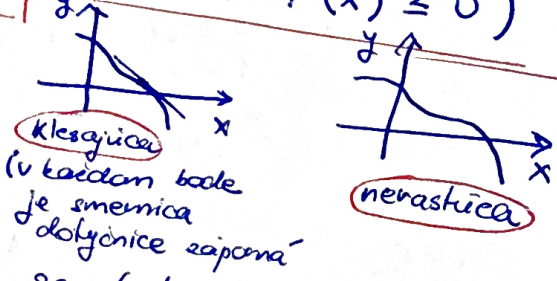 (x) ≤ 0)
y
x
klesajúca
(v každom bode
je smernica
dotyčnice záporná
y
x
nerastúca